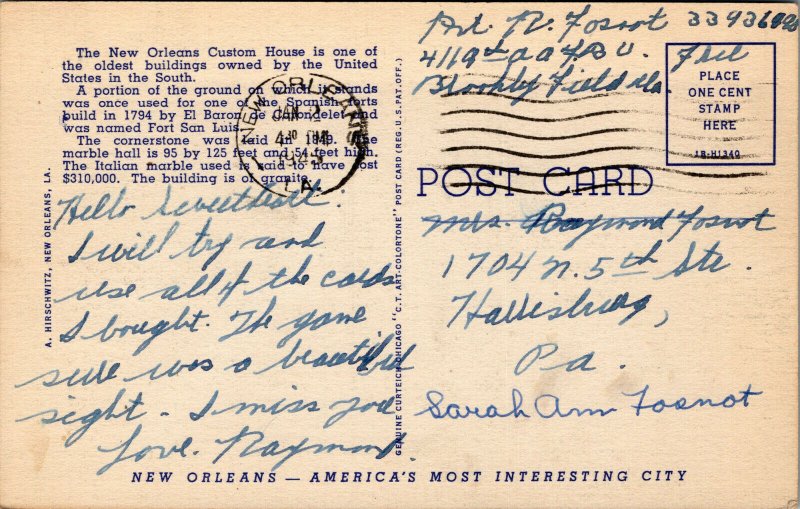 The New Orleans Custom House is one of
the oldest buildings owned by the United
States in the South.
A portion of the ground on which it stands
was once used for one of the Spanish forts
build in 1794 by El Baron de Carondelet and
was named Fort San Luis.
The cornerstone was laid in 1849. The
marble hall is 95 by 125 feet and 54 feet high.
The Italian marble used is said to have cost
$310,000. The building is of granite.
NEW ORLEANS
JAN 2
4 30 PM
1943
LA.
Hello Sweetheart.
I will try and
use all of the cards
I bought. The game
sure was a beautiful
sight. I miss you
Love. Raymond.
A. HIRSCHWITZ, NEW ORLEANS, LA.
GENUINE CURTEICH-CHICAGO "C.T. ART-COLORTONE" POST CARD (REG. U.S. PAT. OFF.)
Pvt. R. Fosnot
Brookly Field Ala.
Free
PLACE
ONE CENT
STAMP
HERE
1B-H1340
POST CARD
Mrs. Raymond Fosnot
1704 N. 5th Str.
Harrisburg,
Pa.
Sarah Ann Fosnot
NEW ORLEANS — AMERICA'S MOST INTERESTING CITY